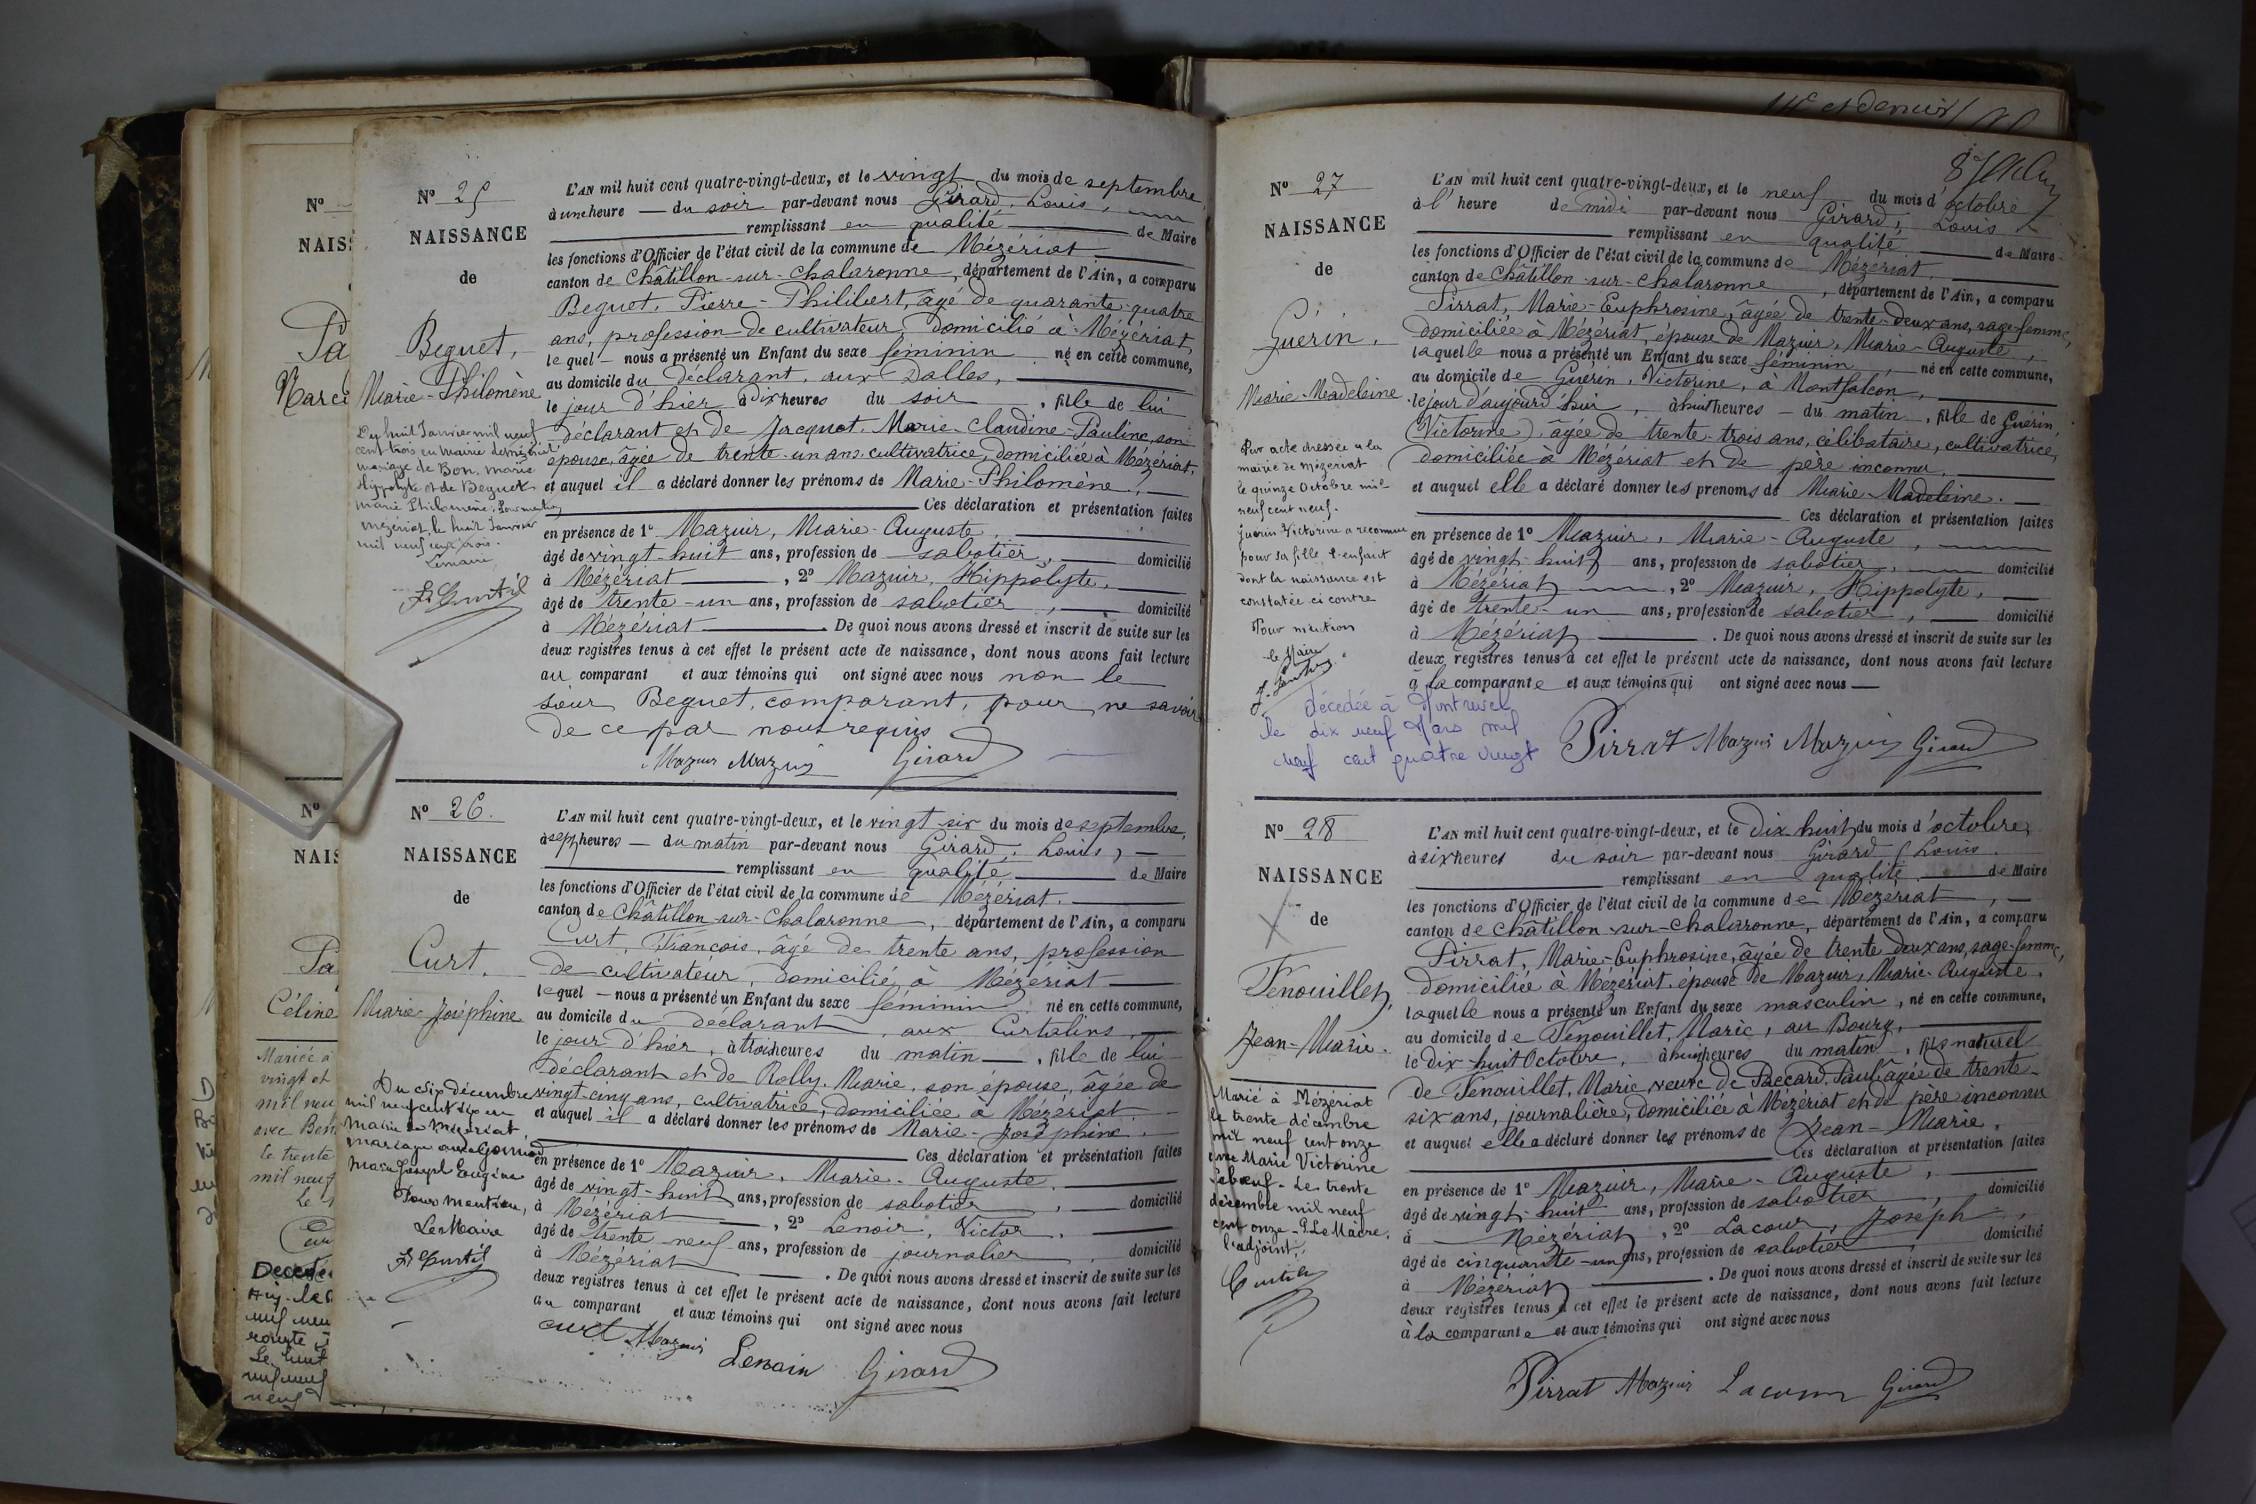 Nº
NAISS
Pa
Marce
Nº
NAIS
Pa
Céline
Mariée à
vingt et
mil neu
avec Ben
le trente
mil neuf
Le
Decedée
Le huit
neuf
Nº 25
NAISSANCE
de
Beguet,
Marie-Philomène
Du huit Janvier mil neuf
cent trois en mairie de Mézériat
mariage de Bon, Marie
Hippolyte et de Beguet
Marie Philomène. Pour mention
Mézériat, le huit Janvier
mil neuf cent trois.
Le maire
L'AN mil huit cent quatre-vingt-deux, et le vingt du mois de septembre,
à une heure — du soir par-devant nous Girard, Louis,
remplissant en qualité de Maire
les fonctions d'Officier de l'état civil de la commune de Mézériat
canton de Châtillon-sur-Chalaronne, département de l'Ain, a comparu
Beguet, Pierre-Philibert, âgé de quarante-quatre
ans, profession de cultivateur, domicilié à Mézériat,
lequel — nous a présenté un Enfant du sexe féminin né en cette commune,
au domicile du déclarant, aux Dalles,
le jour d'hier à dix heures du soir, fille de lui
déclarant et de Jacquot, Marie-Claudine-Pauline, son
épouse, âgée de trente-un ans, cultivatrice, domiciliée à Mézériat,
et auquel il a déclaré donner les prénoms de Marie-Philomène, —
Ces déclaration et présentation faites
en présence de 1º Mazuir, Marie-Auguste,
âgé de vingt-huit ans, profession de sabotier, domicilié
à Mézériat, 2º Mazuir, Hippolyte,
âgé de trente-un ans, profession de sabotier, domicilié
à Mézériat. De quoi nous avons dressé et inscrit de suite sur les
deux registres tenus à cet effet le présent acte de naissance, dont nous avons fait lecture
au comparant et aux témoins qui ont signé avec nous non le
sieur Beguet, comparant, pour ne savoir
de ce par nous requis
Mazuir Mazuir Girard
Nº 26.
NAISSANCE
de
Curt.
Marie-Joséphine
Du dix décembre
mil neuf cent dix en
Mairie de Mézériat
mariage avec
Marie Joseph Eugène
Pour mention,
Le Maire
L'AN mil huit cent quatre-vingt-deux, et le vingt six du mois de septembre,
à sept heures — du matin par-devant nous Girard, Louis, —
remplissant en qualité de Maire
les fonctions d'Officier de l'état civil de la commune de Mézériat.
canton de Châtillon-sur-Chalaronne, département de l'Ain, a comparu
Curt, François, âgé de trente ans, profession
de cultivateur, domicilié à Mézériat —
lequel — nous a présenté un Enfant du sexe féminin né en cette commune,
au domicile du déclarant, aux Curtalins, —
le jour d'hier, à trois heures du matin —, fille de lui
déclarant et de Rolly, Marie, son épouse, âgée de
vingt-cinq ans, cultivatrice, domiciliée à Mézériat —
et auquel il a déclaré donner les prénoms de Marie-Joséphine.
Ces déclaration et présentation faites
en présence de 1º Mazuir, Marie-Auguste,
âgé de vingt-huit ans, profession de sabotier, domicilié
à Mézériat, 2º Lenoir, Victor,
âgé de trente neuf ans, profession de journalier, domicilié
à Mézériat. De quoi nous avons dressé et inscrit de suite sur les
deux registres tenus à cet effet le présent acte de naissance, dont nous avons fait lecture
au comparant et aux témoins qui ont signé avec nous
Curt Mazuir Lenoir Girard
et dernier
Nº 27
NAISSANCE
de
Guérin.
Marie-Madeleine
Par acte dressée à la
mairie de Mézériat
le quinze Octobre mil
neuf cent neuf.
Guérin Victorine a reconnu
pour sa fille l'enfant
dont la naissance est
constatée ci contre
Pour mention
Le Maire
décédée à Montrevel
le dix neuf Mars mil
neuf cent quatre vingt
L'AN mil huit cent quatre-vingt-deux, et le neuf du mois d'octobre
à l'heure de midi par-devant nous Girard, Louis
remplissant en qualité de Maire
les fonctions d'Officier de l'état civil de la commune de Mézériat.
canton de Châtillon-sur-Chalaronne, département de l'Ain, a comparu
Pirrat, Marie-Euphrosine, âgée de trente-deux ans, sage-femme,
domiciliée à Mézériat, épouse de Mazuir, Marie-Auguste,
laquelle nous a présenté un Enfant du sexe féminin, né en cette commune,
au domicile de Guérin, Victorine, à Montfalcon,
le jour d'aujourd'hui, à huit heures — du matin, fille de Guérin
(Victorine), âgée de trente-trois ans, célibataire, cultivatrice,
domiciliée à Mézériat et de père inconnu,
et auquel elle a déclaré donner les prénoms de Marie-Madeleine. —
Ces déclaration et présentation faites
en présence de 1º Mazuir, Marie-Auguste,
âgé de vingt-huit ans, profession de sabotier, domicilié
à Mézériat, 2º Mazuir, Hippolyte,
âgé de trente-un ans, profession de sabotier, domicilié
à Mézériat. De quoi nous avons dressé et inscrit de suite sur les
deux registres tenus à cet effet le présent acte de naissance, dont nous avons fait lecture
à la comparante et aux témoins qui ont signé avec nous —
Pirrat Mazuir Mazuir Girard
Nº 28
NAISSANCE
de
Fenouillet,
Jean-Marie.
Marié à Mézériat
le trente décembre
mil neuf cent onze
avec Marie Victorine
Leboeuf. Le trente
décembre mil neuf
cent onze. P. Le Maire,
l'adjoint,
L'AN mil huit cent quatre-vingt-deux, et le dix huit du mois d'octobre,
à six heures du soir par-devant nous Girard, Louis
remplissant en qualité de Maire
les fonctions d'Officier de l'état civil de la commune de Mézériat, —
canton de Châtillon-sur-Chalaronne, département de l'Ain, a comparu
Pirrat, Marie-Euphrosine, âgée de trente deux ans, sage-femme,
domiciliée à Mézériat, épouse de Mazuir, Marie-Auguste,
laquelle nous a présenté un Enfant du sexe masculin, né en cette commune,
au domicile de Fenouillet, Marie, au Bourg,
le dix-huit Octobre, à huit heures du matin, fils naturel
de Fenouillet, Marie, veuve de Paccard, Paul, âgée de trente-
six ans, journalière, domiciliée à Mézériat et de père inconnu
et auquel elle a déclaré donner les prénoms de Jean-Marie.
Ces déclaration et présentation faites
en présence de 1º Mazuir, Marie-Auguste,
âgé de vingt-huit ans, profession de sabotier, domicilié
à Mézériat, 2º Lacour, Joseph,
âgé de cinquante-un ans, profession de sabotier, domicilié
à Mézériat. De quoi nous avons dressé et inscrit de suite sur les
deux registres tenus à cet effet le présent acte de naissance, dont nous avons fait lecture
à la comparante et aux témoins qui ont signé avec nous
Pirrat Mazuir Lacour Girard